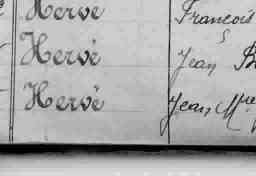 Hervé François
Hervé Jean
Hervé Jean Mie